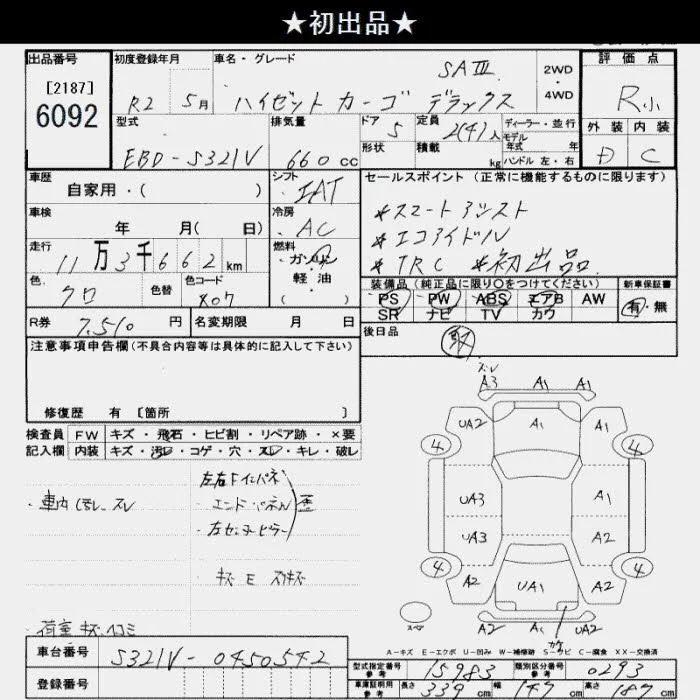 ★初出品★
出品番号 初度登録年月 車名・グレード 評価点
[2187]
6092
R2 5月 ハイゼット カーゴ デラックス SAⅢ 2WD・4WD R小
型式 排気量 ドア 定員 ディーラー・並行
EBD-S321V 660cc 5 2(4)人 モデル年式 年
形状 積載 kg ハンドル 左・右
外装 内装
D C
車歴 自家用・( ) シフト IAT
車検 年 月( 日) 冷房 AC
走行 11万3千662km 燃料 ガソリン・軽油
色 クロ 色替 色コード X07
R券 7,510円 名変期限 月 日
セールスポイント(正常に機能するものに限ります)
*スマートアシスト
*エコアイドル
*TRC *初出品
装備品(純正品に限り〇をつけてください) 新車保証書
PS PW ABS エアB AW 有・無
SR ナビ TV カワ
後日品
注意事項申告欄(不具合内容等は具体的に記入して下さい)
修復歴 有 [箇所 ]
検査員 FW キズ・飛石・ヒビ割・リペア跡・×要
記入欄 内装 キズ・汚レ・コゲ・穴・スレ・キレ・破レ
左右Fインパネ
・車内 汚レ、スレ ・エンドパネル 歪
・左センターピラー
・キズ E
荷室キズ、凹ミ
スレ
A3 A1 A1
UA2 A1 A2
4 4
UA3 A1
UA3 A2
4 4
A2 UA1 A2
A1 UA2
スペア
A-キズ E-エクボ U-凹み W-補修跡 S-サビ C-腐食 XX-交換済
車台番号 S321V-0450542
登録番号
型式指定番号 参考 15983 類別区分番号 参考 0293
車庫証明用 参考 長さ 339cm 幅 147cm 高さ 187cm